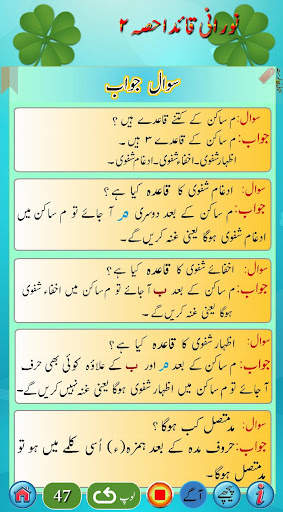 نورانی قائدا حصہ ۲
سوال جواب
سوال: م ساکن کے کتنے قاعدے ہیں ؟
جواب: م ساکن کے قاعدے ۳ ہیں ۔
اظہار شفوی ۔ اخفاء شفوی ۔ ادغام شفوی ۔
سوال: ادغام شفوی کا قاعدہ کیا ہے؟
جواب: م ساکن کے بعد دوسری م آ جائے تو م ساکن میں
ادغام شفوی ہوگا یعنی غنہ کریں گے۔
سوال: اخفائے شفوی کا قاعدہ کیا ہے؟
جواب: م ساکن کے بعد ب آ جائے تو م ساکن میں اخفاء شفوی
ہوگا یعنی غنہ کریں گے۔
سوال: اظہار شفوی کا قاعدہ کیا ہے ؟
جواب: م ساکن کے بعد م اور ب کے علاوہ کوئی بھی حرف
آ جائے تو م ساکن میں اظہار شفوی ہوگا یعنی غنہ نہیں کریں گے۔
سوال: مد متصل کب ہوگا ؟
جواب: حروف مدہ کے بعد ہمزہ (ء) اُسی کلمے میں ہو تو
مد متصل ہوگا
47 لوپ آگے پیچھے